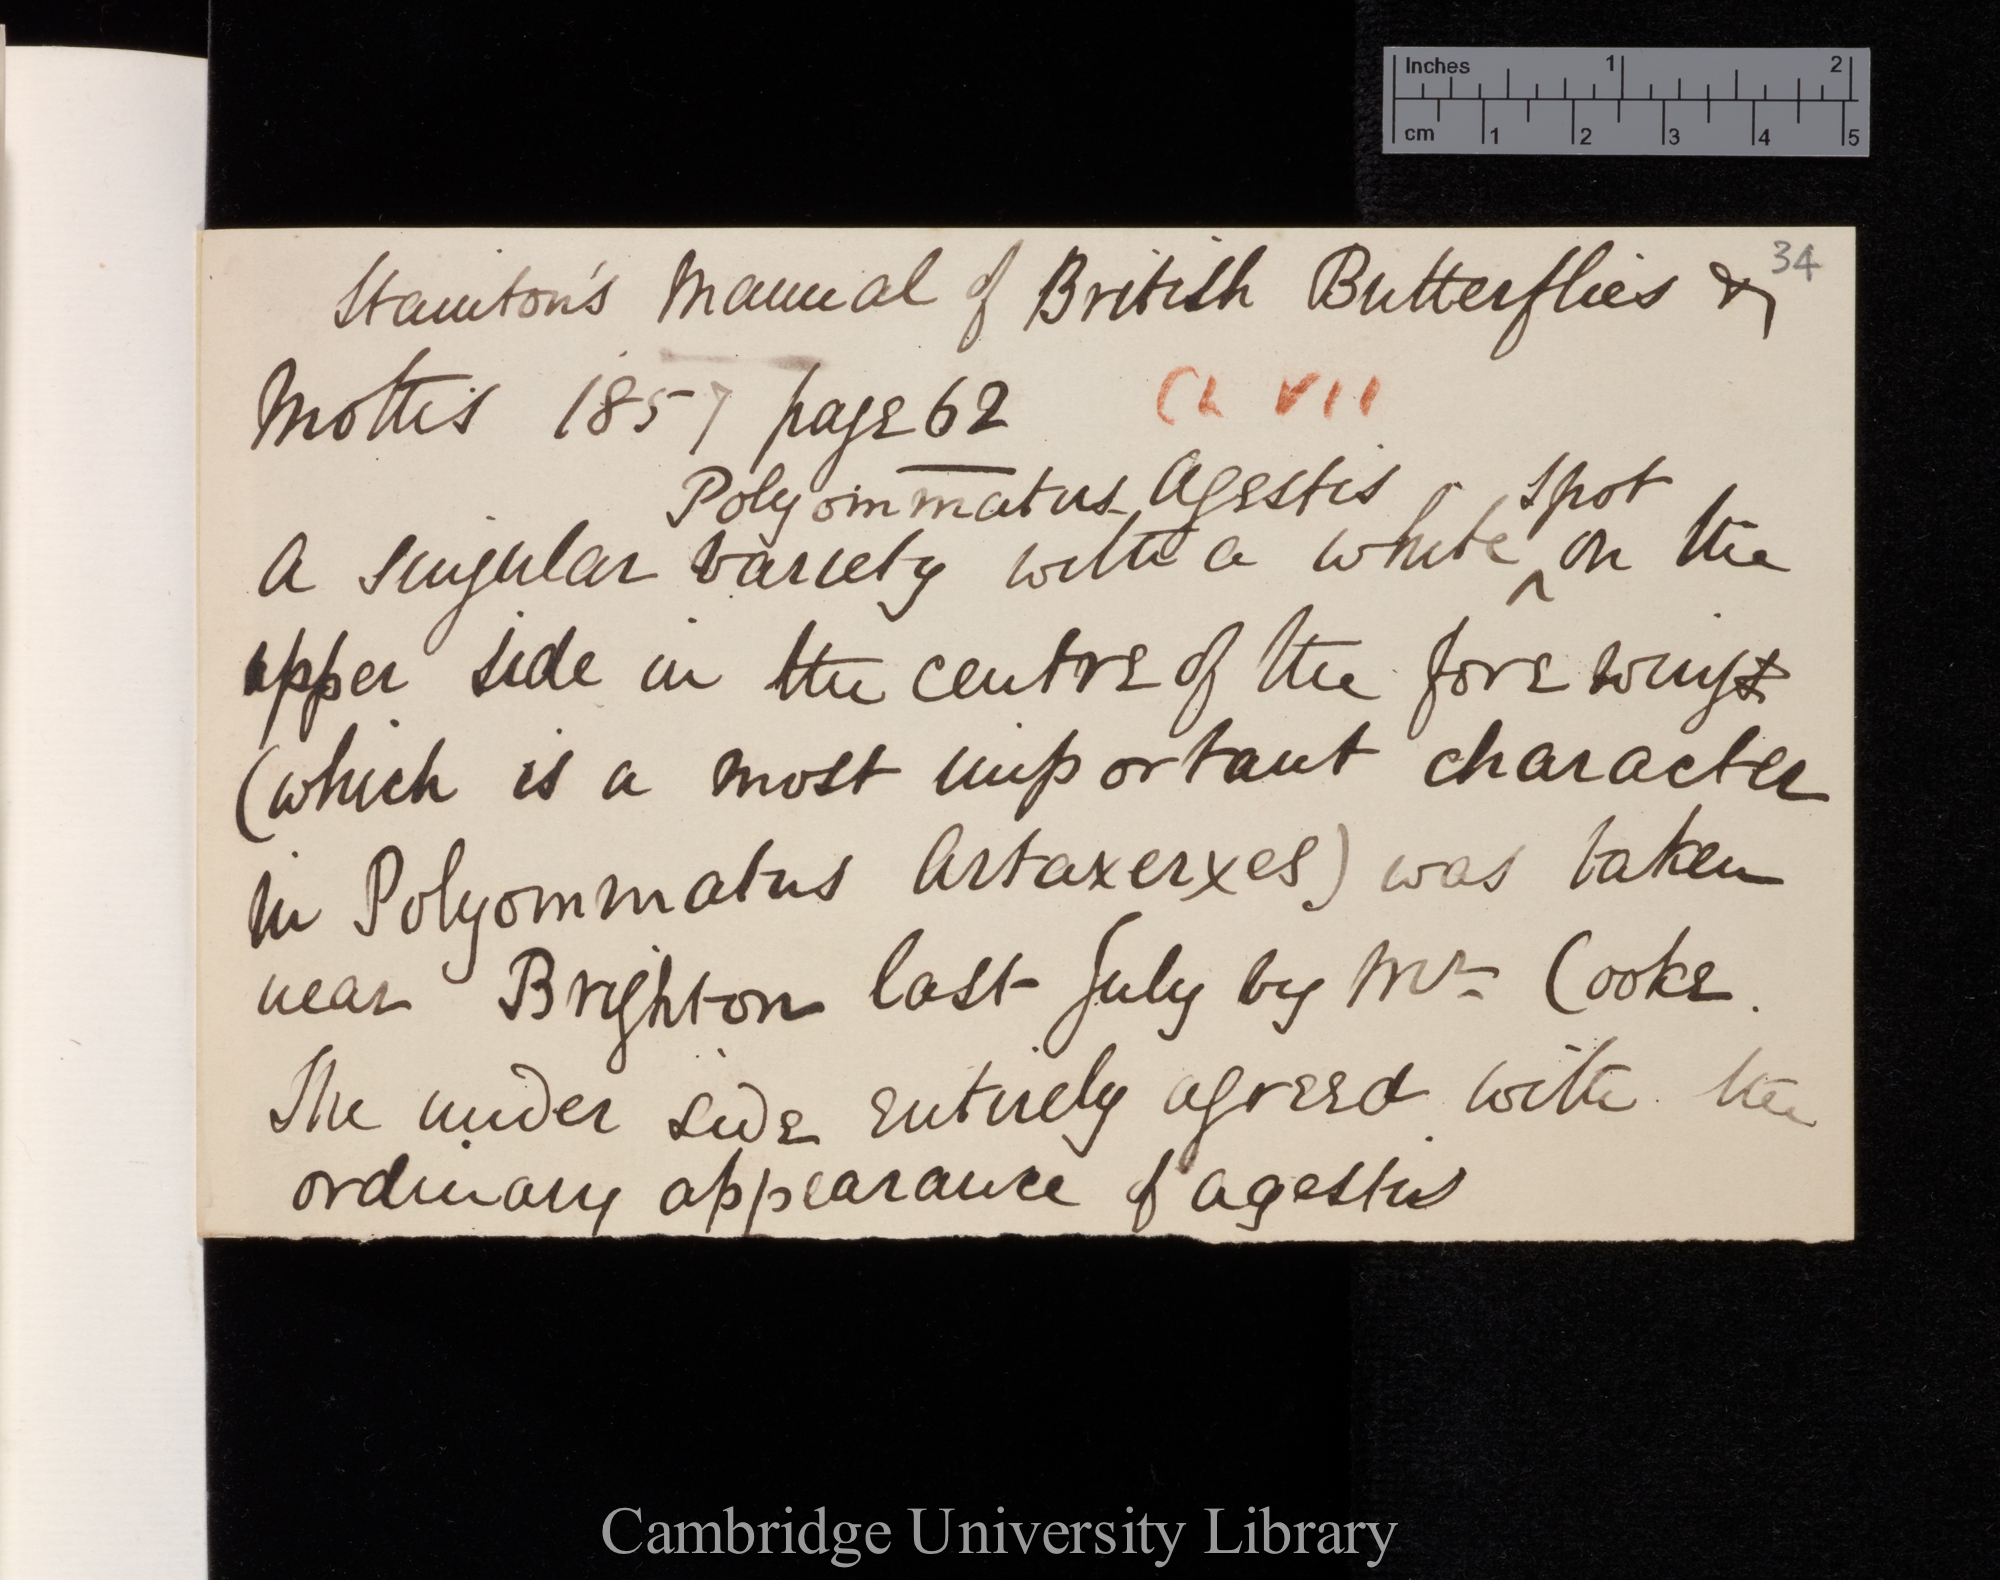 Inches 1 2
cm 1 2 3 4 5
34
Stainton's Manual of British Butterflies &
Moths 1857 page 62
Ch VII
Polyommatus Agestis
spot
A singular variety with a white ^ on the
upper side in the centre of the fore wings
(which is a most important character
in Polyommatus Artaxerxes) was taken
near Brighton last July by Mr Cooke.
The under side entirely agreed with the
ordinary appearance of agestis
Cambridge University Library